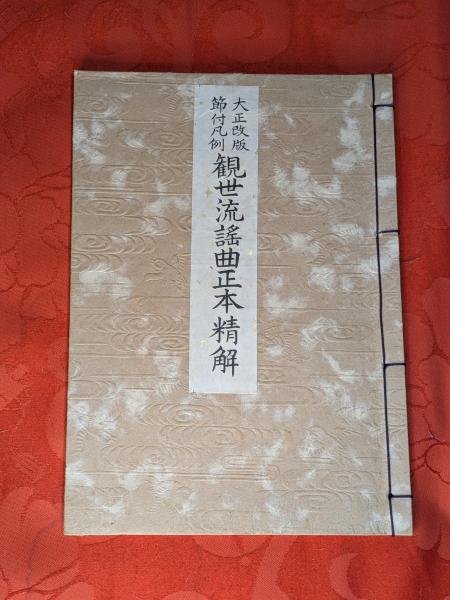 大正改版
節付凡例
観世流謡曲正本精解